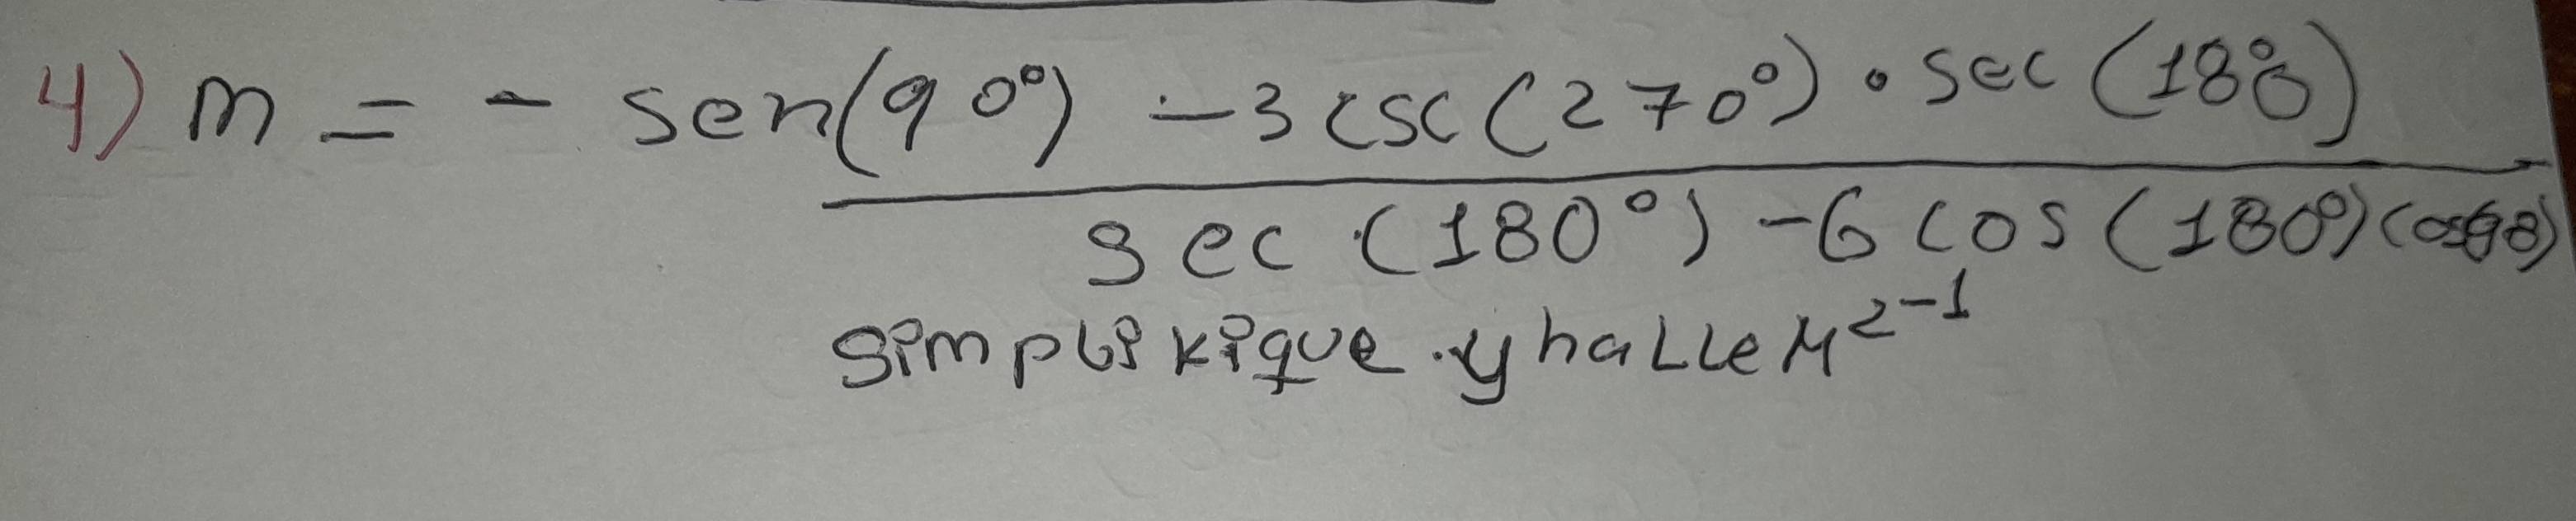 4) m = - sen(90°) -3 csc(270°) · sec(180°)
sec (180°) -6 cos (180°)
Simplikique y halle M²⁻¹